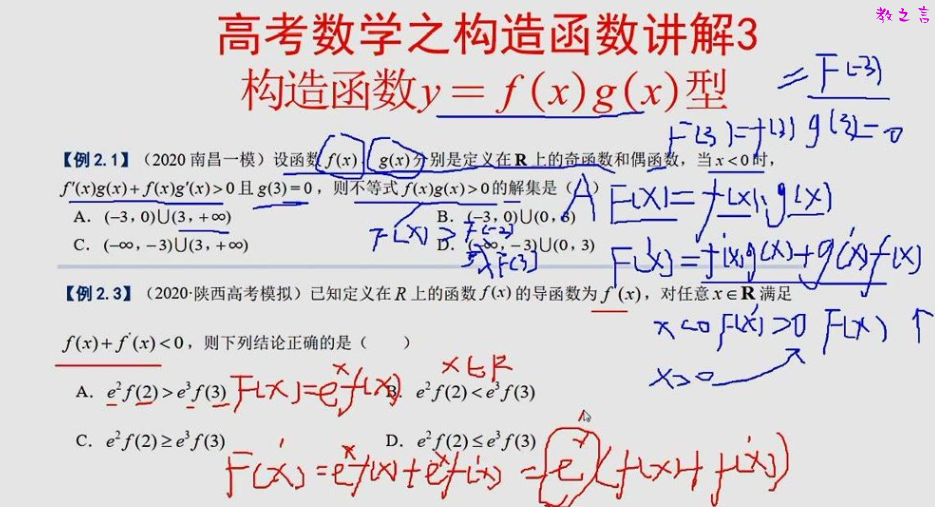 教之言
高考数学之构造函数讲解3
构造函数y = f(x)g(x)型
= F(-3)
F(3)=f(3) g(3)=0
【例2.1】(2020 南昌一模)设函数 f(x), g(x)分别是定义在R上的奇函数和偶函数,当x<0时,
f'(x)g(x)+f(x)g'(x)>0且g(3)=0,则不等式f(x)g(x)>0的解集是( A )
A. (-3,0)∪(3,+∞)
B. (-3,0)∪(0,3)
C. (-∞,-3)∪(3,+∞)
D. (-∞,-3)∪(0,3)
F(x)=f(x)·g(x)
F(x) > F(-3)
或F(3)
F'(x)=f'(x)g(x)+g'(x)f(x)
x<0 F'(x)>0 F(x) ↑
x>0
【例2.3】(2020·陕西高考模拟)已知定义在R上的函数f(x)的导函数为f'(x),对任意x∈R满足
f(x)+f'(x)<0,则下列结论正确的是( )
A. e²f(2)>e³f(3)
B. e²f(2)<e³f(3)
C. e²f(2)≥e³f(3)
D. e²f(2)≤e³f(3)
F(x)=eˣf(x)
x∈R
F'(x)=eˣf(x)+eˣf'(x)=eˣ(f(x)+f'(x))